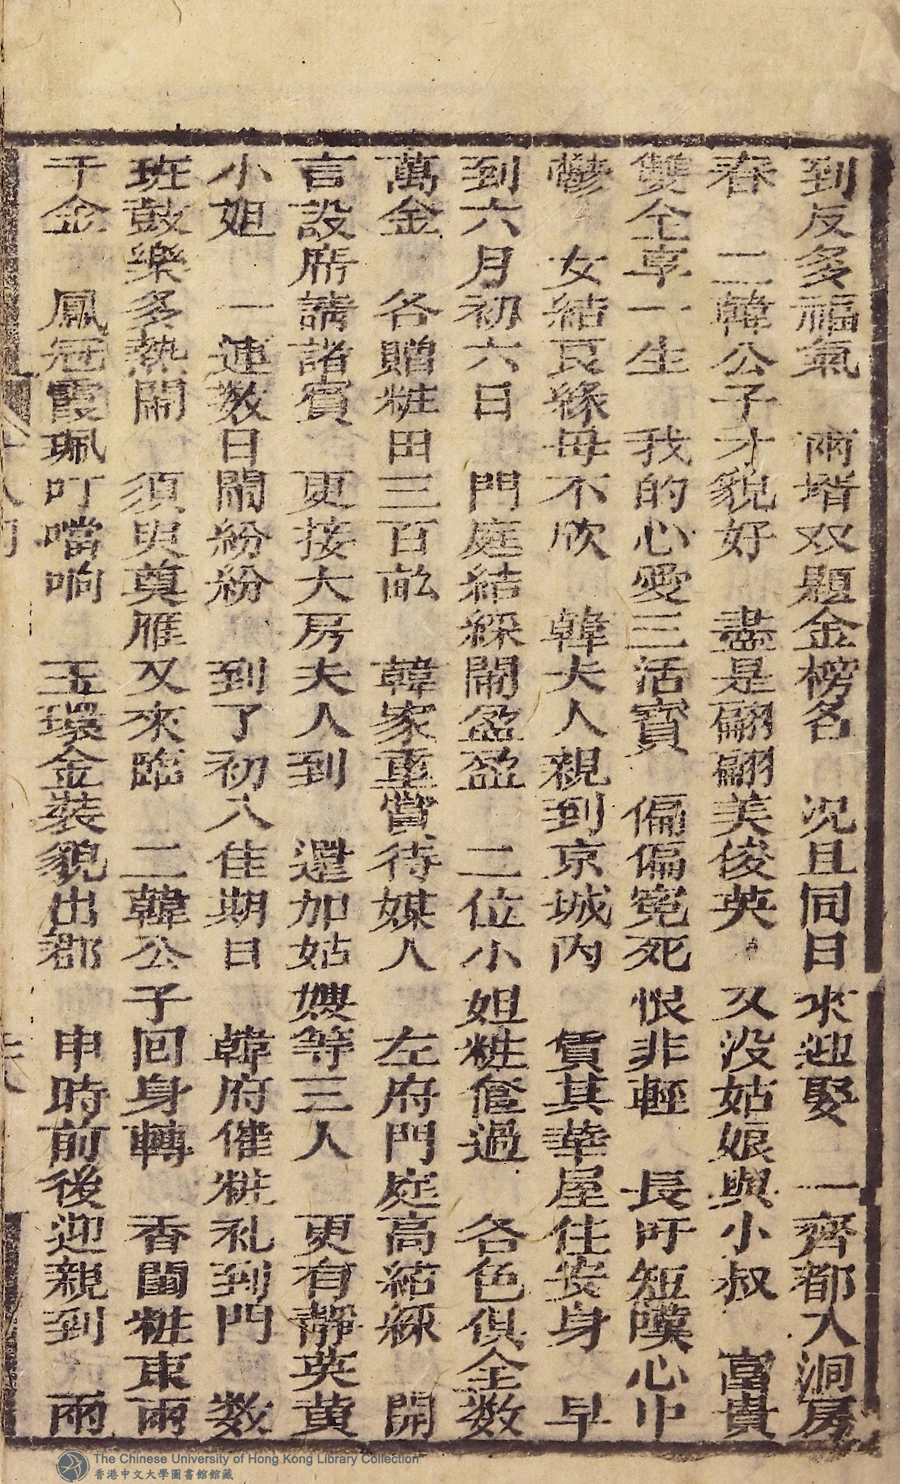 到反多福氣　兩壻双題金榜名　况且同日來迎娶　一齊都入洞房
春　二韓公子才貌好　盡是翩翩美俊英　又没姑娘與小叔　富貴
雙全享一生　我的心愛三活寳　偏偏寃死恨非輕　長吁短嘆心中
慘　女結良緣母不欣　韓夫人親到京城内　賃其華屋住安身　早
到六月初六日　門庭結綵鬧盈盈　二位小姐粧奩過　各色俱全数
萬金　各贈粧田三百畝　韓家重賞待媒人　左府門庭高結綵　開
言設席請諸賓　更接大房夫人到　還加姑嫂等三人　更有靜英黄
小姐　一連数日鬧紛紛　到了初八佳期日　韓府催粧礼到門　数
班鼓樂多熱鬧　須臾奠雁又來臨　二韓公子回身轉　香閨粧束兩
千金　鳳冠霞珮叮噹响　玉環金裝貌出郡　申時前後迎親到　兩
The Chinese University of Hong Kong Library Collection
香港中文大學圖書館館藏